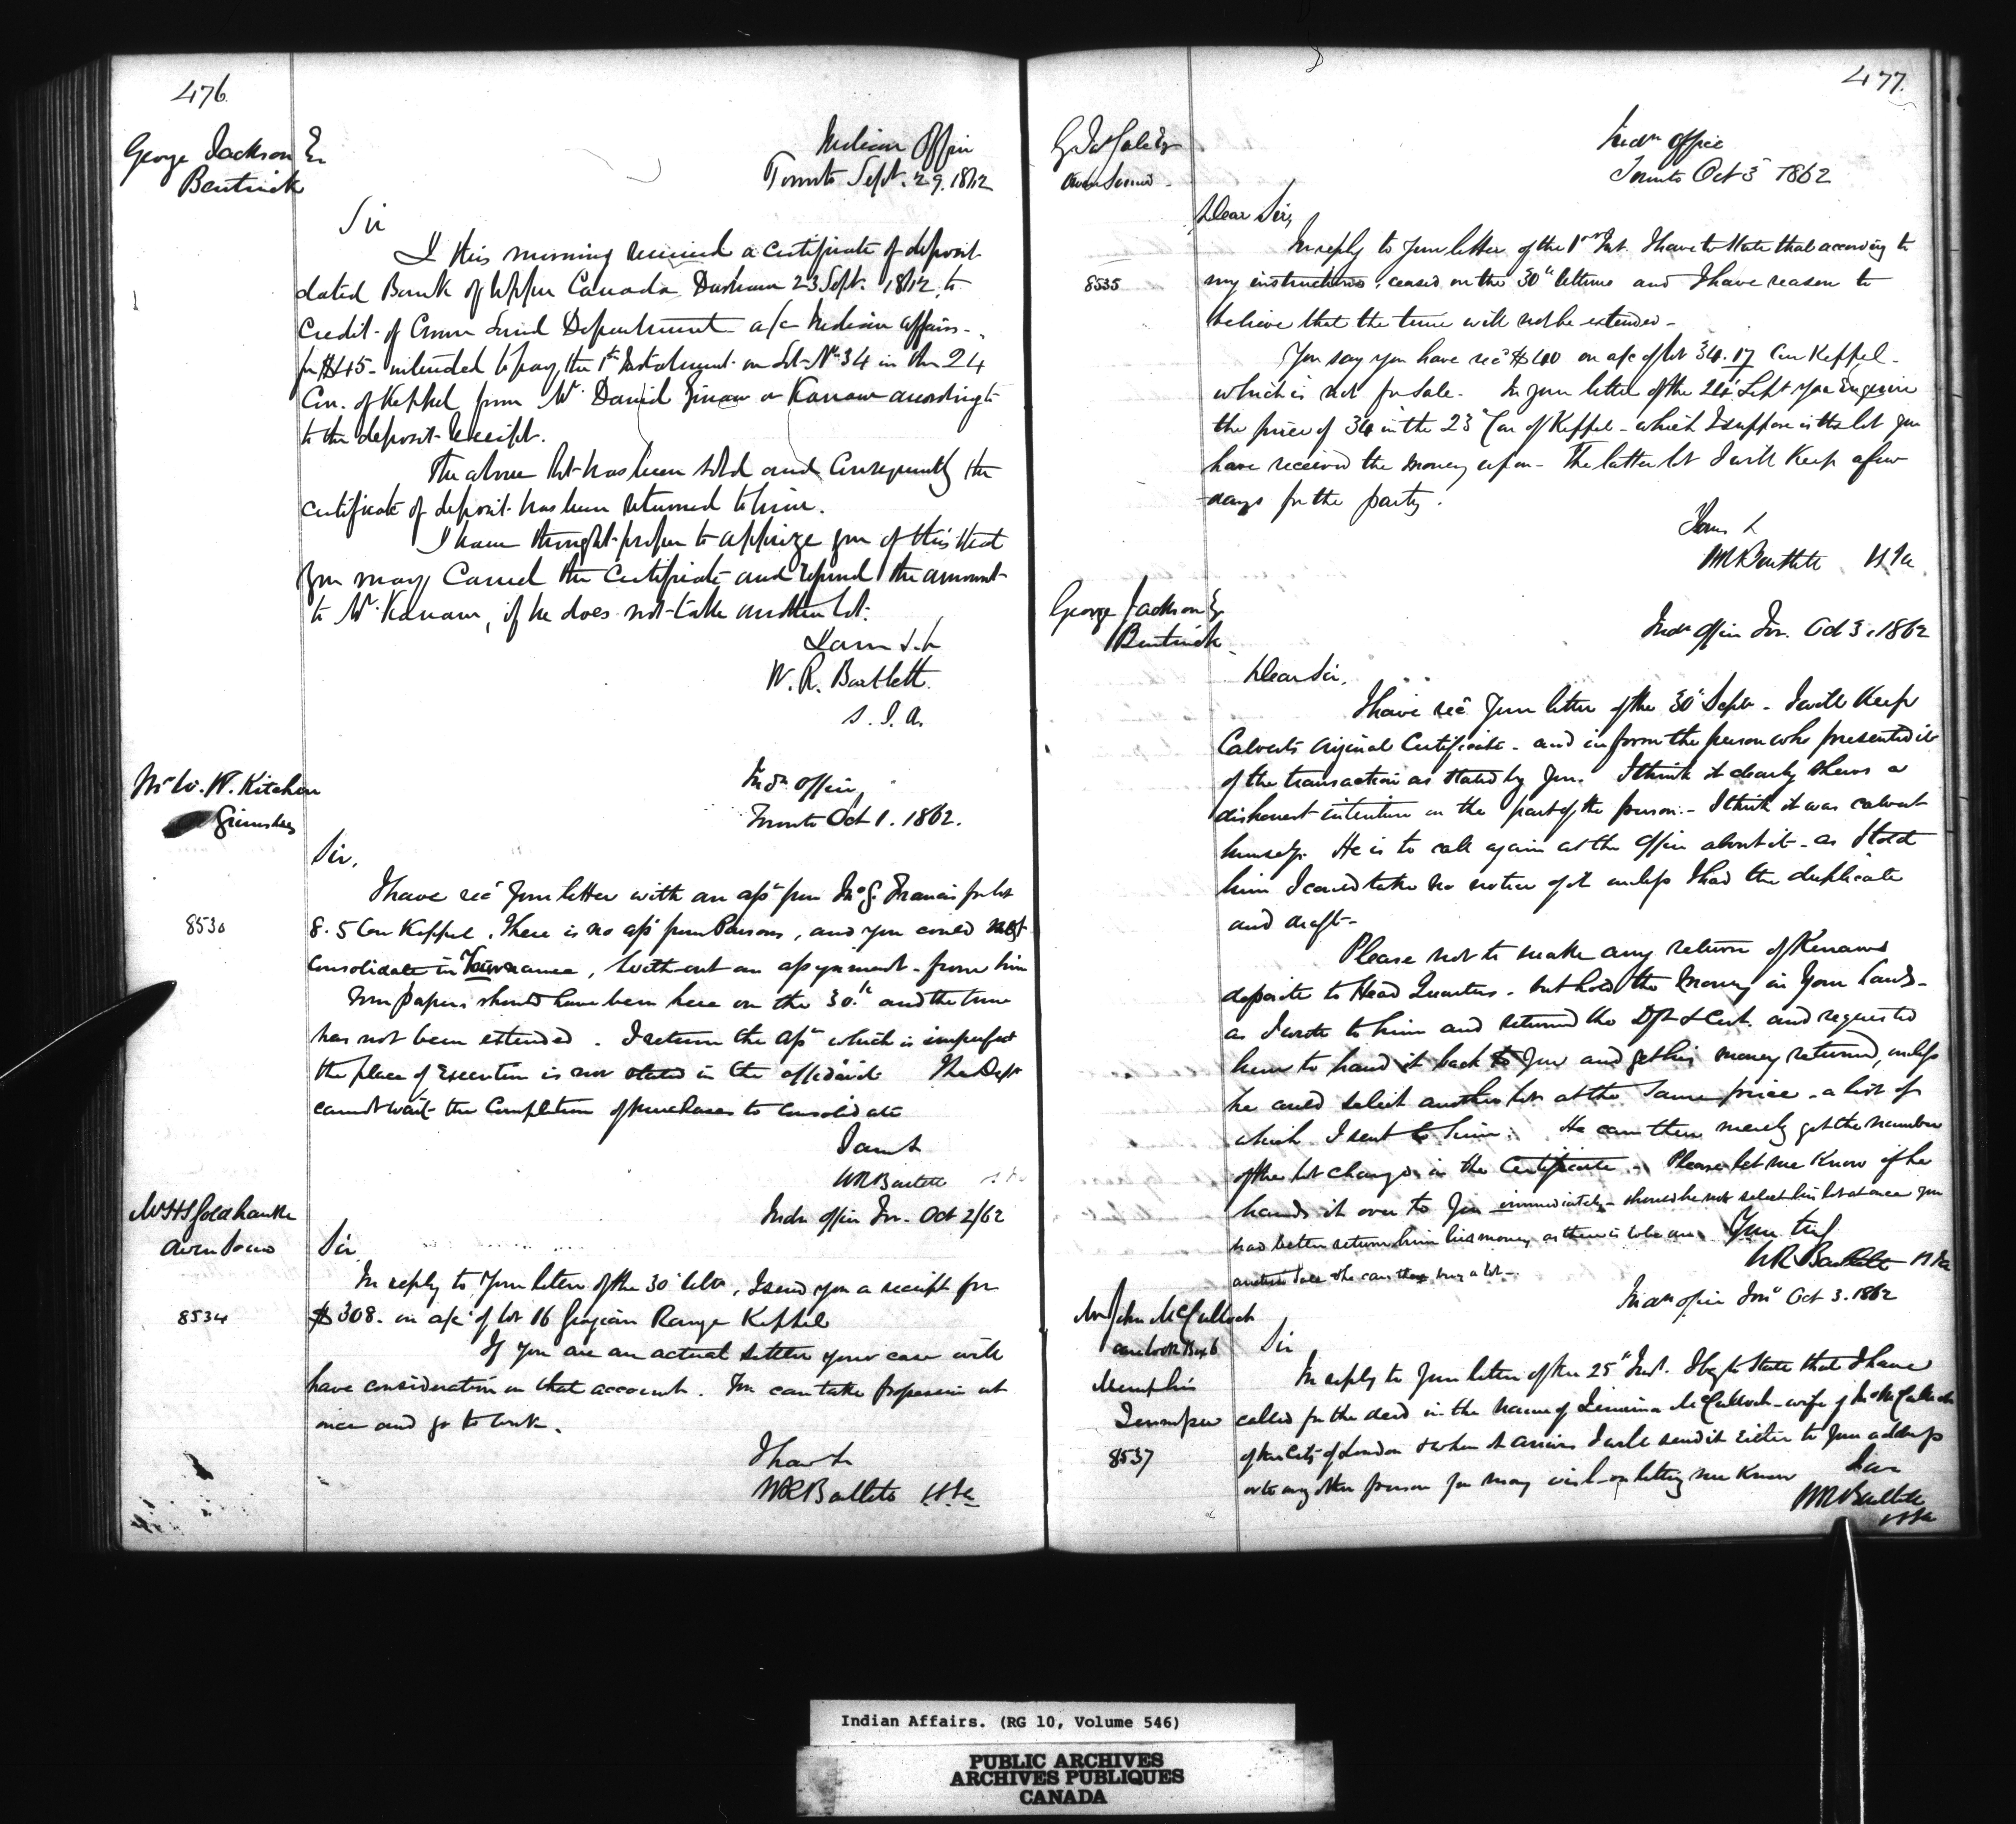 476
George Jackson Er
Bentinck
Indian Office
Toronto Sept. 29. 1862
Sir
I this morning received a certificate of deposit
dated Bank of Upper Canada Durham 23 Sept. 1862, to
credit of Crown Land Department a/c Indian Affairs.
for $45 - intended to pay the 1st Instalment on Lot No 34 in the 24
Con. of Keppel from Mr David or Kanaw according to
to the deposit receipt.
The above lot has been sold and consequently the
certificate of deposit has been returned to him.
I have thought proper to apprize you of this that
you may cancel the certificate and refund the amount
to Mr Kanaw, if he does not take another lot.
I am &c
W. R. Bartlett.
S. I. A.
Mr W. W. Kitchen
Grimsby
Indn Office,
Toronto Oct 1. 1862.
Sir,
I have recd your letter with an asst from Jno G. Francis for lot
8530
8. 5 Con Keppel. There is no asst from Parsons, and you could not
consolidate in Your name, without an assignment from him
Your papers should have been here on the 30th and the time
has not been extended. I return the asst which is imperfect
the place of execution is not stated in the affidavit The Dept
cannot wait the completion of purchases to consolidate
I am &
WR Bartlett
Indn Office Tor. Oct 2/62
Owen Sound
Sir
In reply to your letter of the 30th ulto, I send you a receipt for
8534
$308. on a/c of lot 16 Range Keppel
If you are an actual settler your case will
have consideration on that account. You can take possession at
once and go to work.
I have &c
WR Bartlett
477.
Owen Sound
Indn Office
Toronto Oct 3 1862
Dear Sir,
In reply to your letter of the 1st Inst. I have to state that according to
8535
my instructions, ceased on the 30th ultimo and I have reason to
believe that the time will not be extended -
You say you have recd $400 on a/c of lot 34. 17 Con Keppel -
which is not for sale. In your letter of the 24 Sept you enquire
the price of 34 in the 23 Con of Keppel - which I suppose is the lot you
have received the money upon - The latter lot I will keep a few
days for the party.
Yours &
WR Bartlett
George Jackson Er
Bentinck
Indn Office Tor. Oct 3. 1862
Dear Sir,
I have recd your letter of the 30th Sept - I will keep
Calverts original Certificate - and inform the person who presented it
of the transaction as stated by you. I think it clearly shews a
dishonest intention on the part of the person. - I think it was Calvert
himself. He is to call again at the Office about it - as I told
him I could take no notice of it unless I had the duplicate
and draft -
Please not to make any return of Kenaws
deposite to Head Quarters - but hold the money in your hands -
as I wrote to him and returned the Dft & Cert. and requested
him to hand it back to you and get his money returned, unless
he could select another lot at the same price - a list of
which I sent to him. He can then merely get the number
of the lot changed in the Certificate - Please let me know if he
hands it over to you immediately - should he not select his lot at once you
had better return him his money as there is to be an Yours truly
another sale & he can then buy a lot -
WR Bartlett
Mr John McCulloch
Memphis
8537
Indn Office Tor. Oct 3. 1862
Sir
In reply to your letter of the 25th Inst. I beg to state that I have
called for the deed in the name of McCulloch - wife of Jno McCulloch
of the City of London & when it arrives I will send it either to your address
or to any other person you may wish on letting me know
WR Bartlett
Indian Affairs. (RG 10, Volume 546)
PUBLIC ARCHIVES
ARCHIVES PUBLIQUES
CANADA